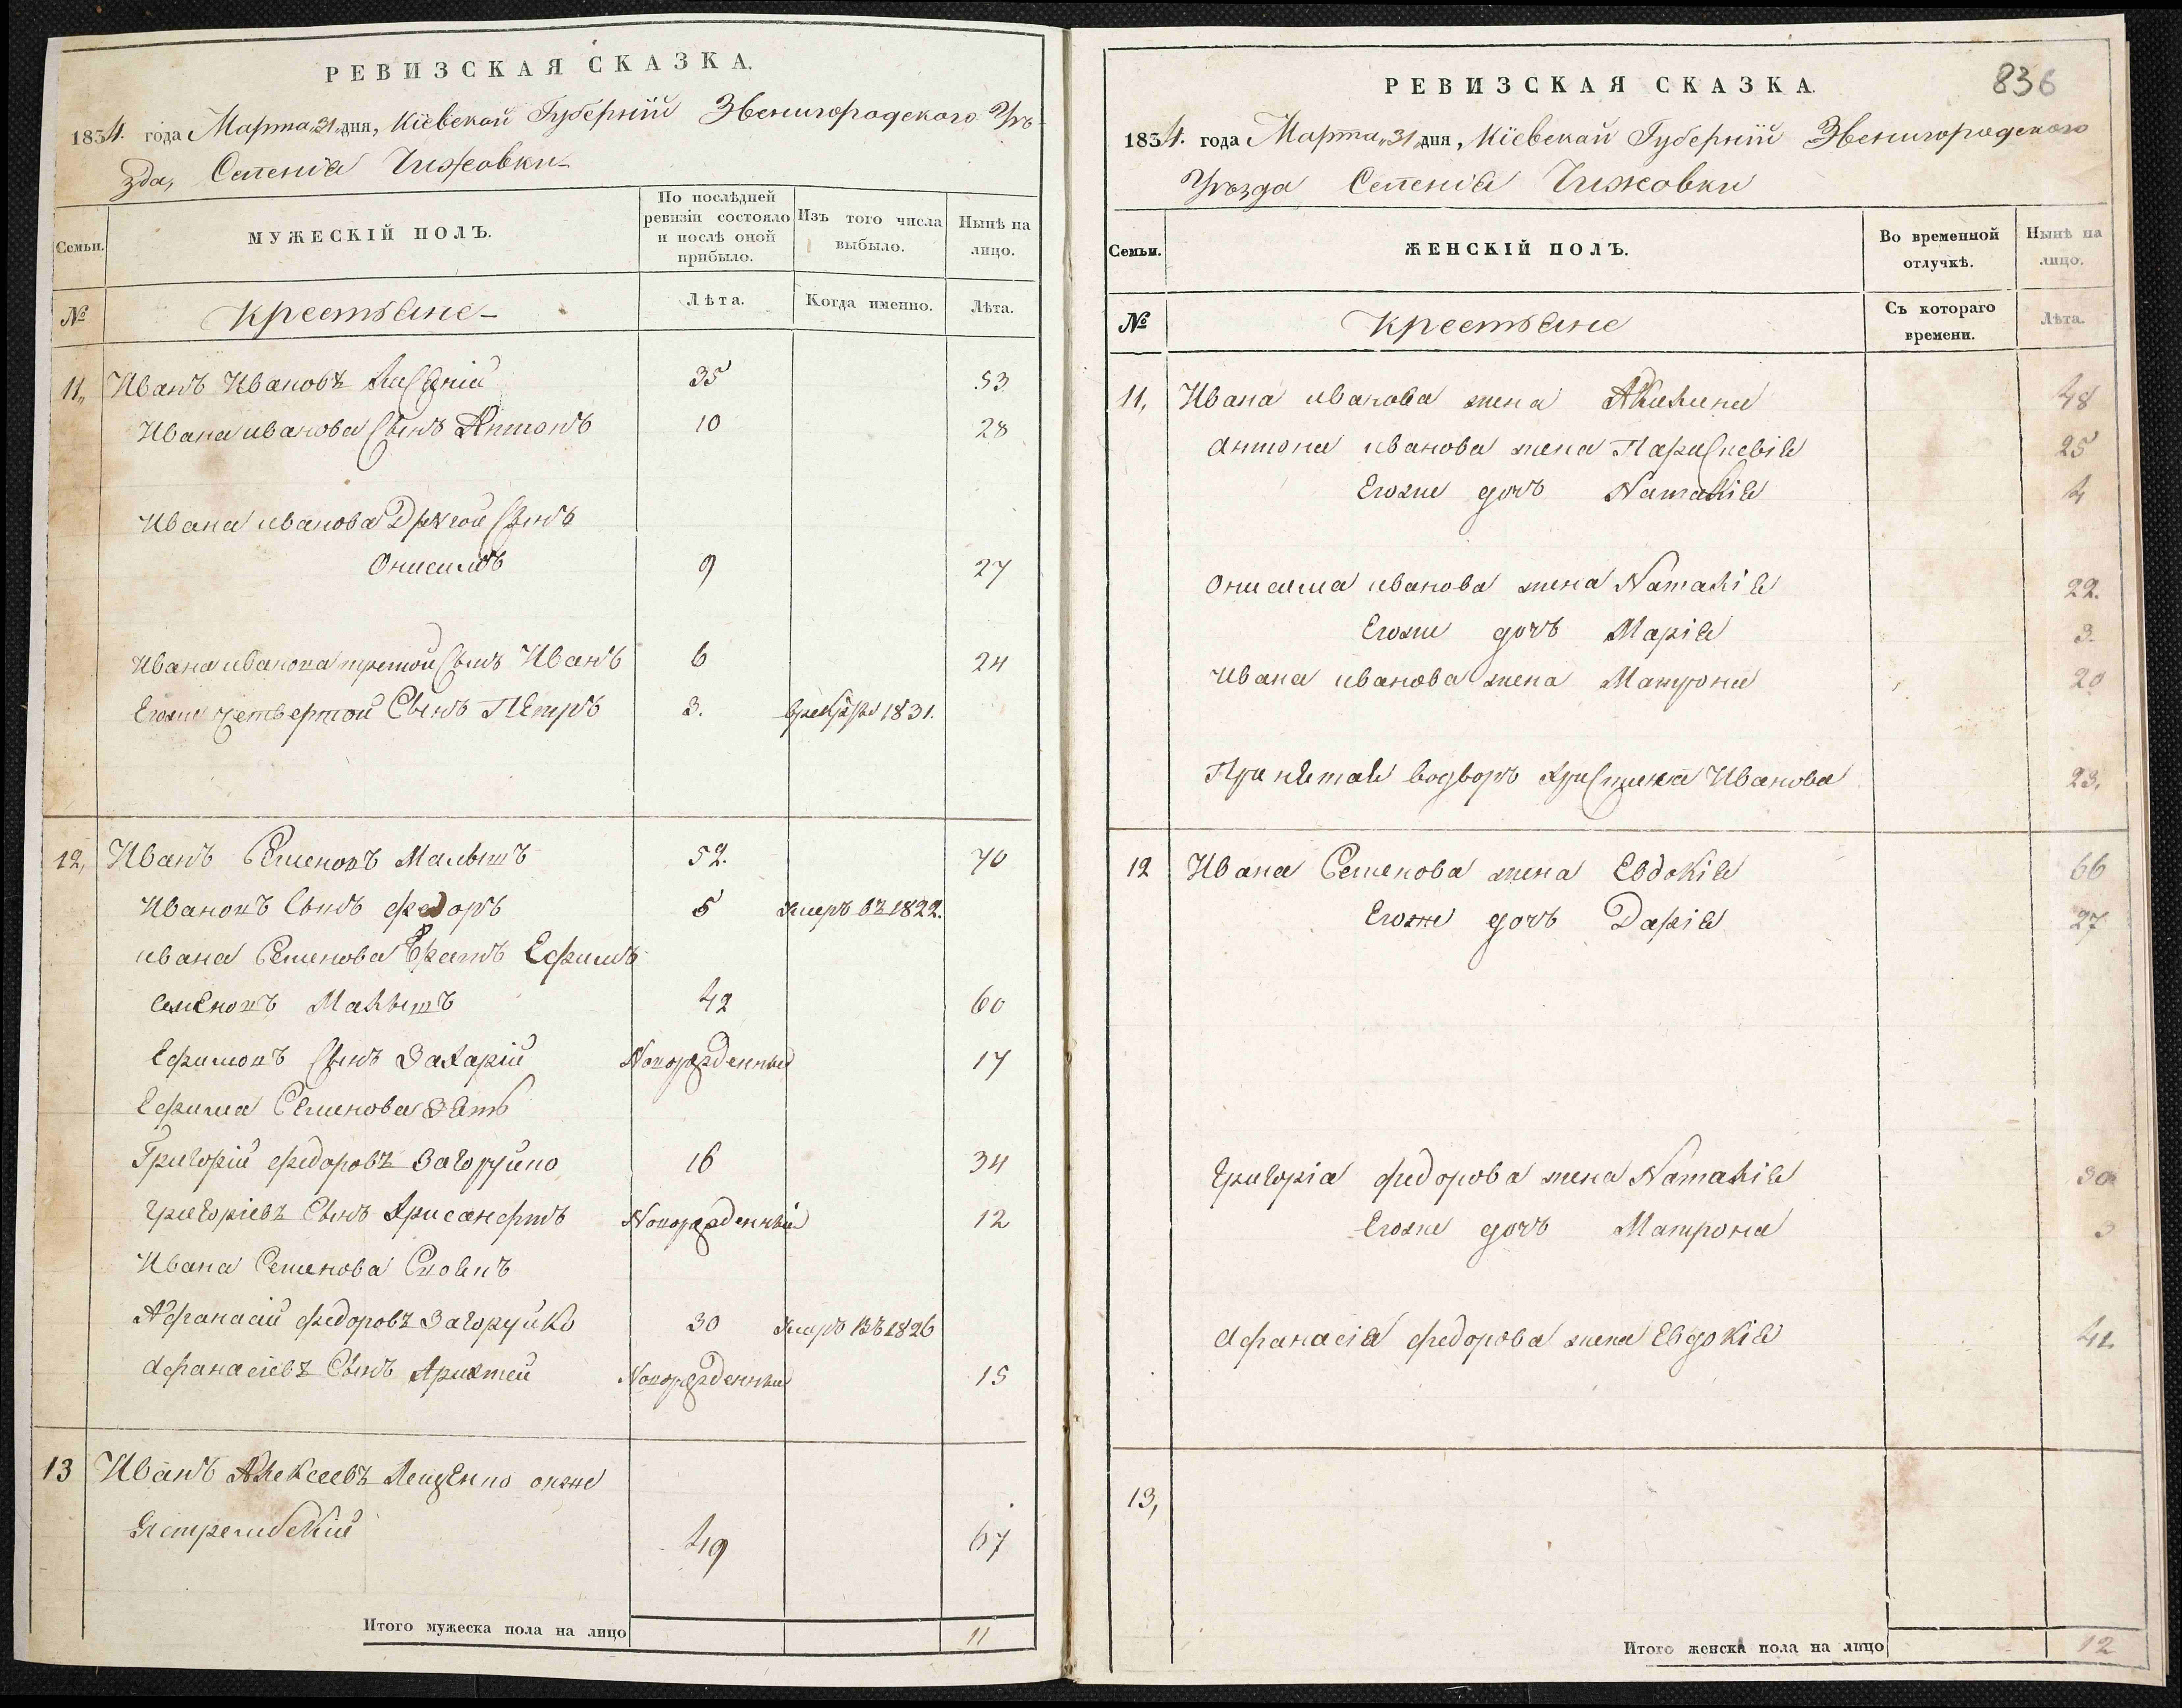 РЕВИЗСКАЯ СКАЗКА.
1834. года Марта 31 дня, Кіевской Губерніи Звенигородского Уѣ-
зда, Селенія Чижовки
Семьи.
МУЖЕСКІЙ ПОЛЪ.
По послѣдней ревизіи состояло и послѣ оной прибыло.
Изъ того числа выбыло.
Нынѣ на лицо.
№
Крестьяне
Лѣта.
Когда именно.
Лѣта.
11, Иванъ Ивановъ 35 53
Ивана иванова Сынъ Антонъ 10 28
Ивана иванова Другой Сынъ
Онисимъ 9 27
Ивана иванова третой Сынъ Иванъ 6 24
Егоже четвертой Сынъ Петръ 3. 1831.
12, Иванъ Семеновъ Малышъ 52. 70
Ивановъ Сынъ федоръ 5 Умеръ въ 1822.
ивана Семенова Братъ Ефимъ
семеновъ Малышъ 42 60
Ефимовъ Сынъ Захарій Новорожденный 17
Ефима Семенова Зять
Григорій федоровъ Загоруйко 16 34
григоріевъ Сынъ Хрисанфтъ Новорожденный 12
Ивана Семенова
Афанасій федоровъ Загоруйко 30 Умеръ въ 1826
афанасіевъ Сынъ Новорожденный 15
13 Иванъ Алексеевъ Лещенко онже
Ястрембскій 49 67
Итого мужеска пола на лицо 11
836
РЕВИЗСКАЯ СКАЗКА.
1834. года Марта 31 дня, Кіевской Губерніи Звенигородского
Уѣзда Селенія Чижовки
Семьи.
ЖЕНСКІЙ ПОЛЪ.
Во временной отлучкѣ.
Нынѣ на лицо.
№
Крестьяне
Съ котораго времени.
Лѣта.
11, Ивана иванова жена Акилина 48
антона иванова жена Параскевія 25
Егоже дочь Наталія 4
онисима иванова жена Наталія 22.
Егоже дочь Марія 3.
Ивана иванова жена Матрона 20
Принятая водворъ Христина Иванова 23.
12 Ивана Семенова жена Евдокія 66
Егоже дочь Дарія 27
григорія федорова жена Наталія 30
Егоже дочь Матрона 3
афанасія федорова жена Евдокія
13,
Итого женска пола на лицо 12